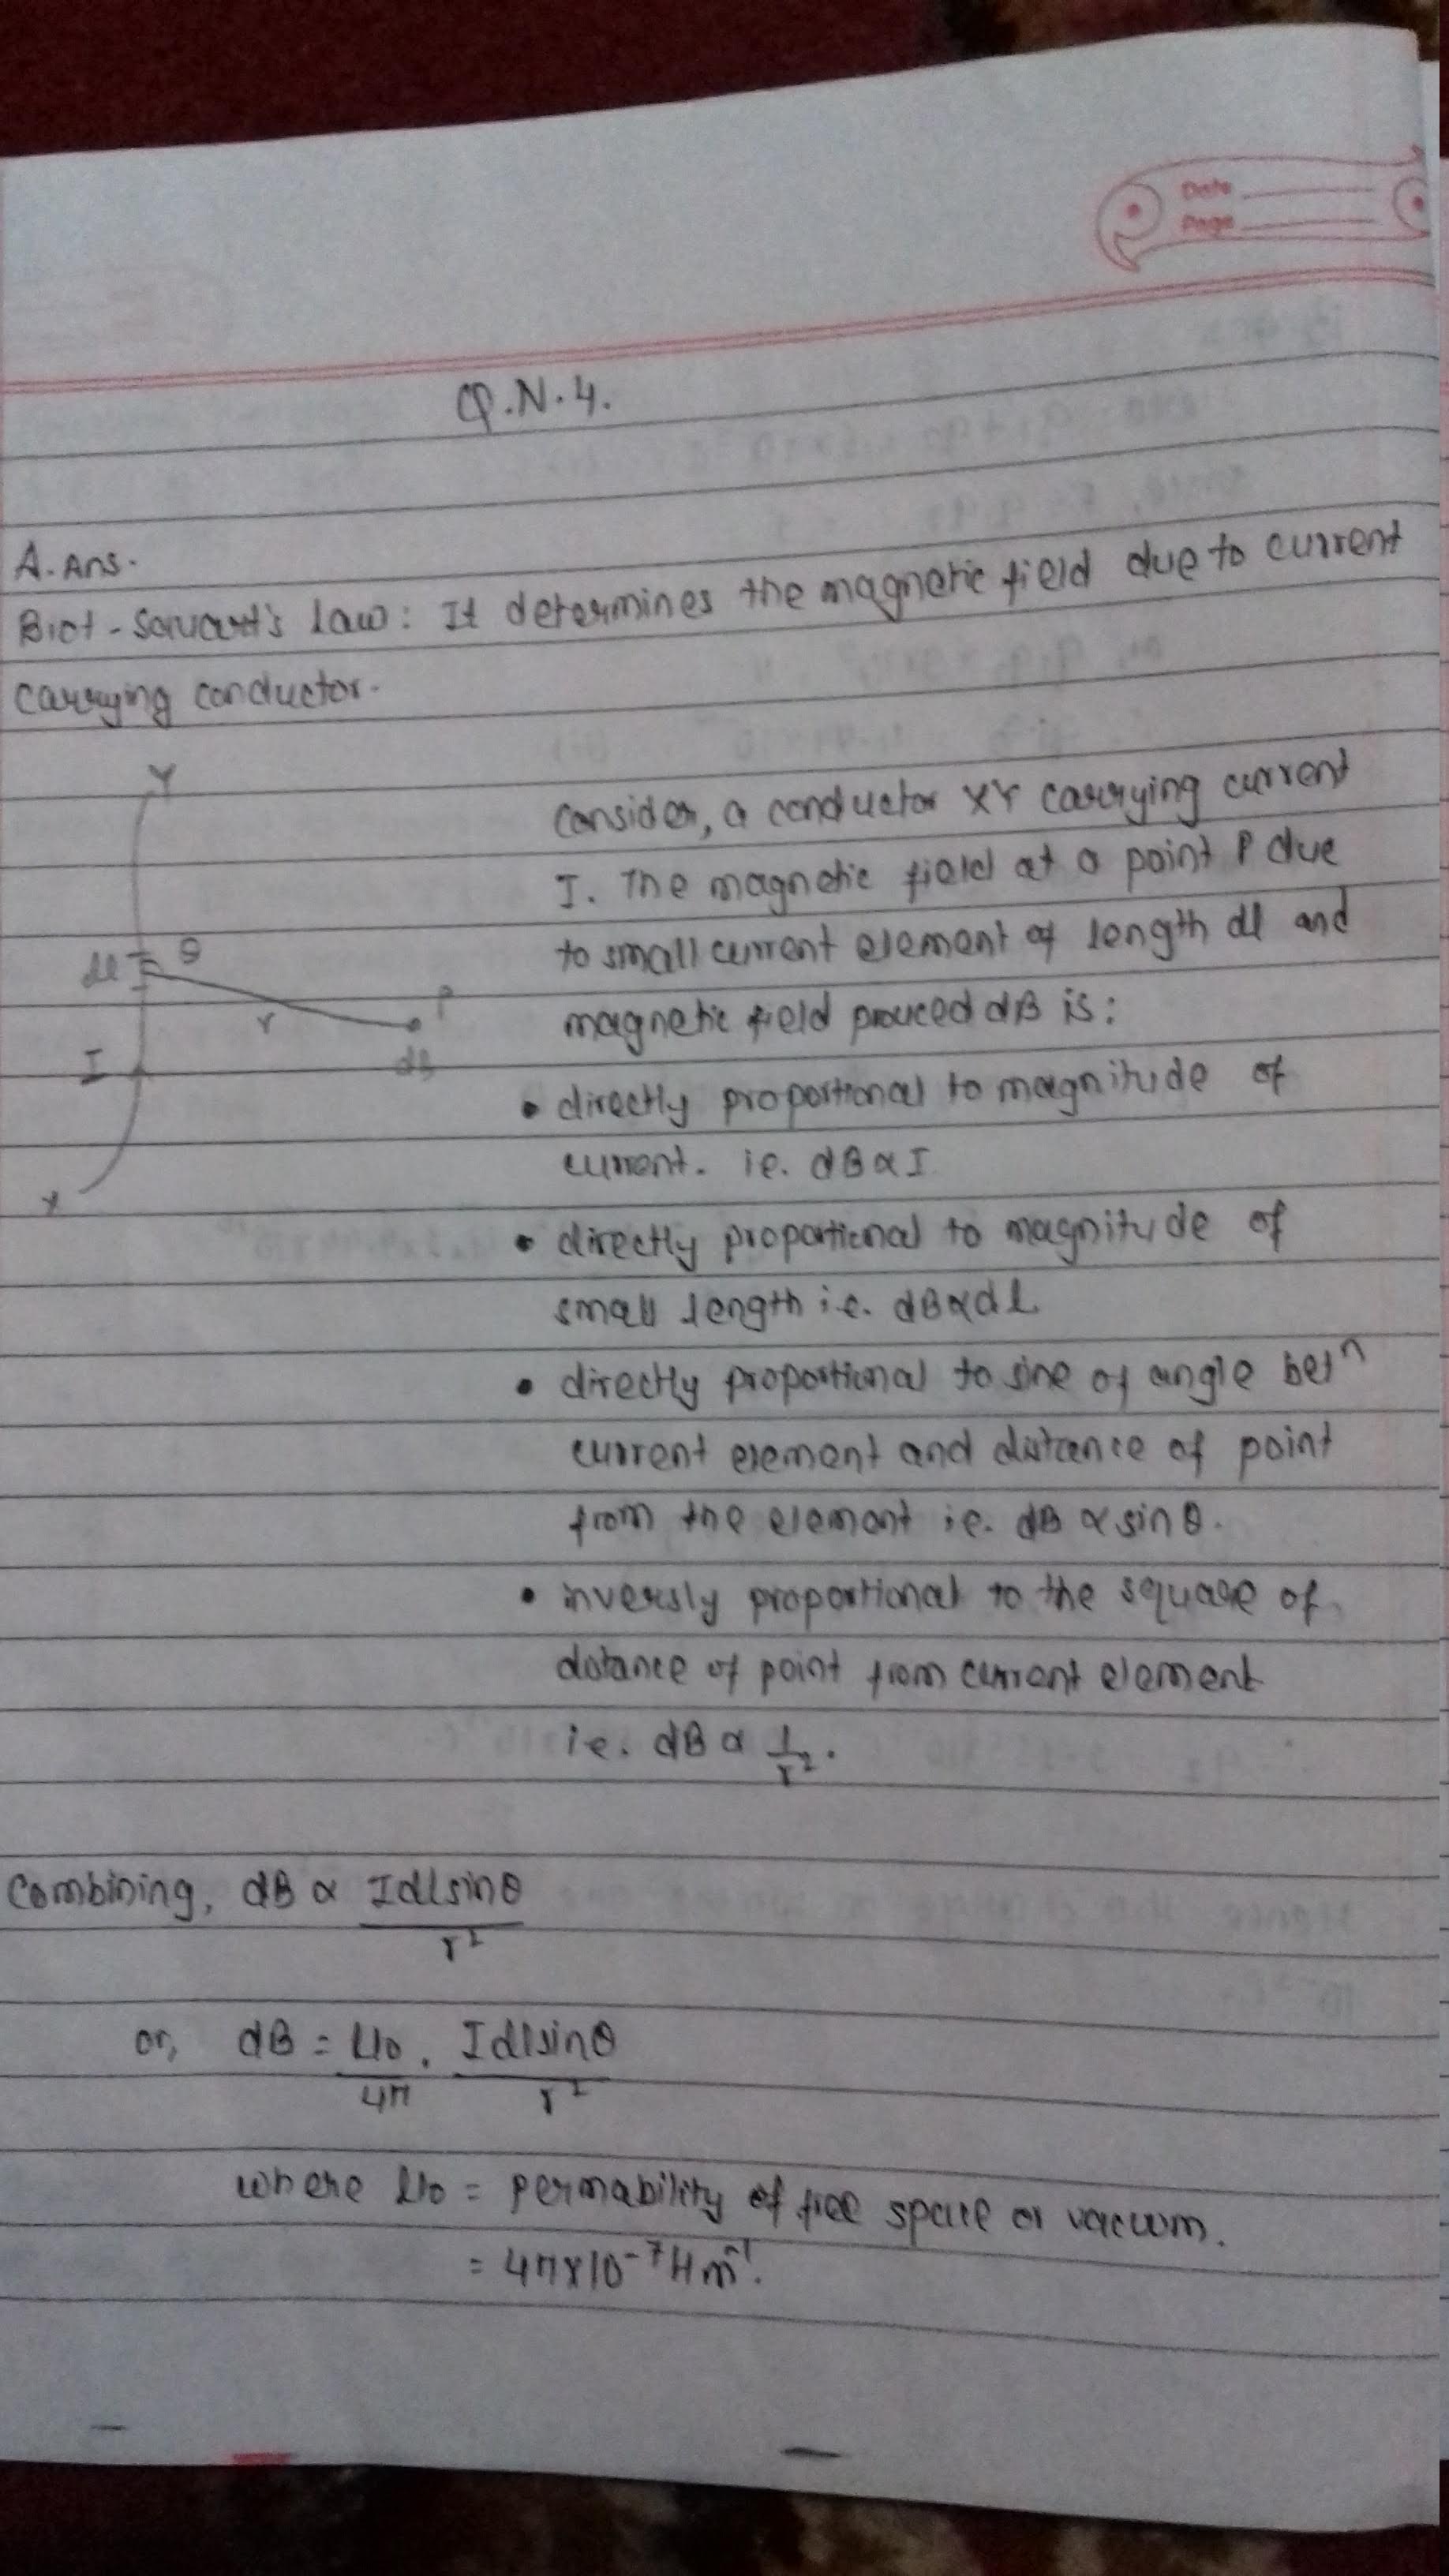 Date
Page
Q.N.4.
A. Ans.
Biot-Savart's law: It determines the magnetic field due to current
carrying conductor.
Y
dl θ
r
P
dB
I
X
consider, a conductor XY carrying current
I. The magnetic field at a point P due
to small current element of length dl and
magnetic field prouced dB is:
• directly proportional to magnitude of
current. ie. dB∝I
• directly proportional to magnitude of
small length i.e. dB∝dl
• directly proportional to sine of angle betⁿ
current element and distance of point
from the element ie. dB ∝ sinθ.
• inversly proportional to the square of
distance of point from current element
i.e. dB ∝ 1/r².
Combining, dB ∝ Idlsinθ/r²
or, dB = μ0/4π . Idlsinθ/r²
where μ0 = permability of free space or vacuum.
= 4π×10⁻⁷Hm⁻¹.